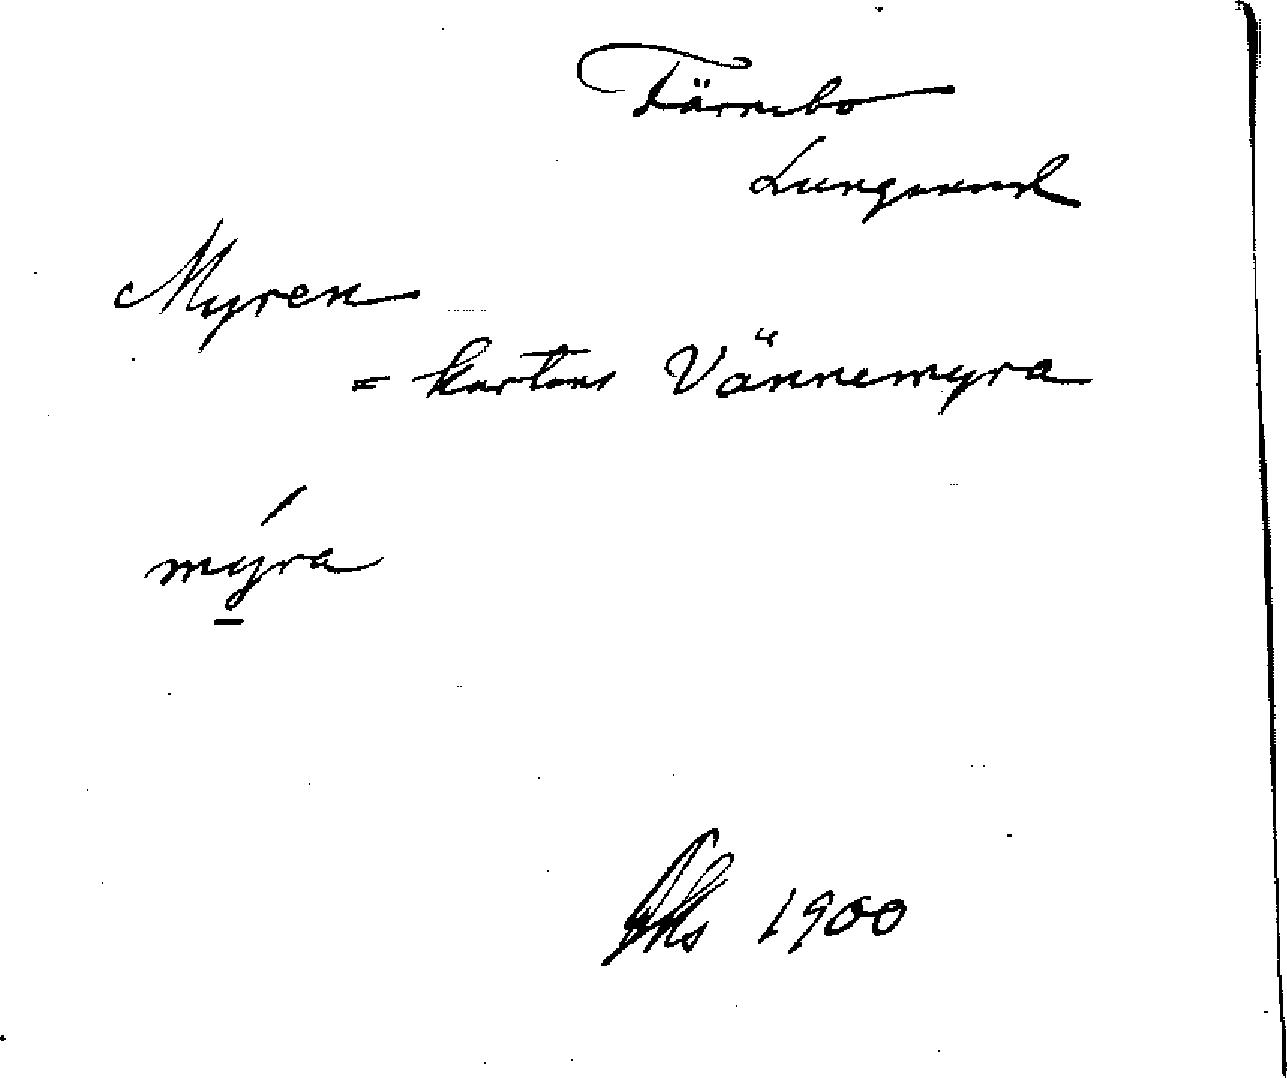 Färnebo
Lungsund
Myren
= kartans Vännemyra
myra
1900